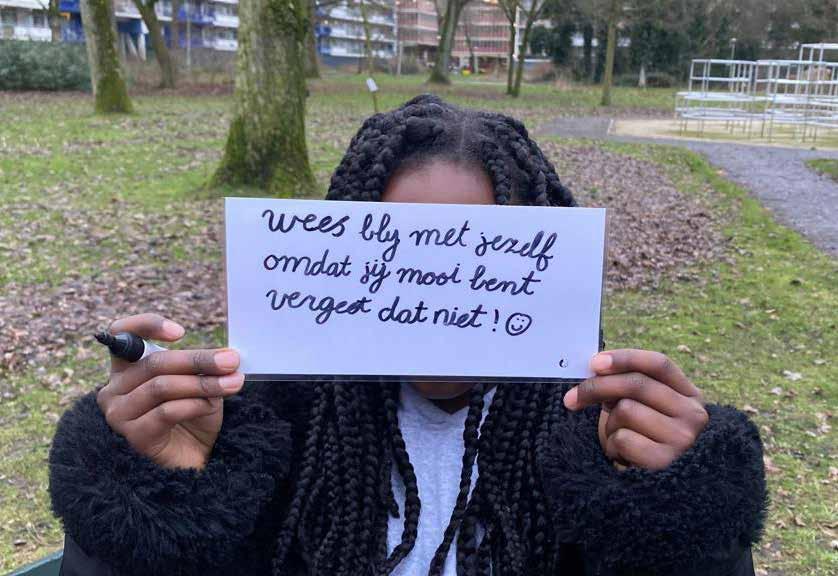 wees bly met jezelf
omdat jij mooi bent
vergeet dat niet! ☺